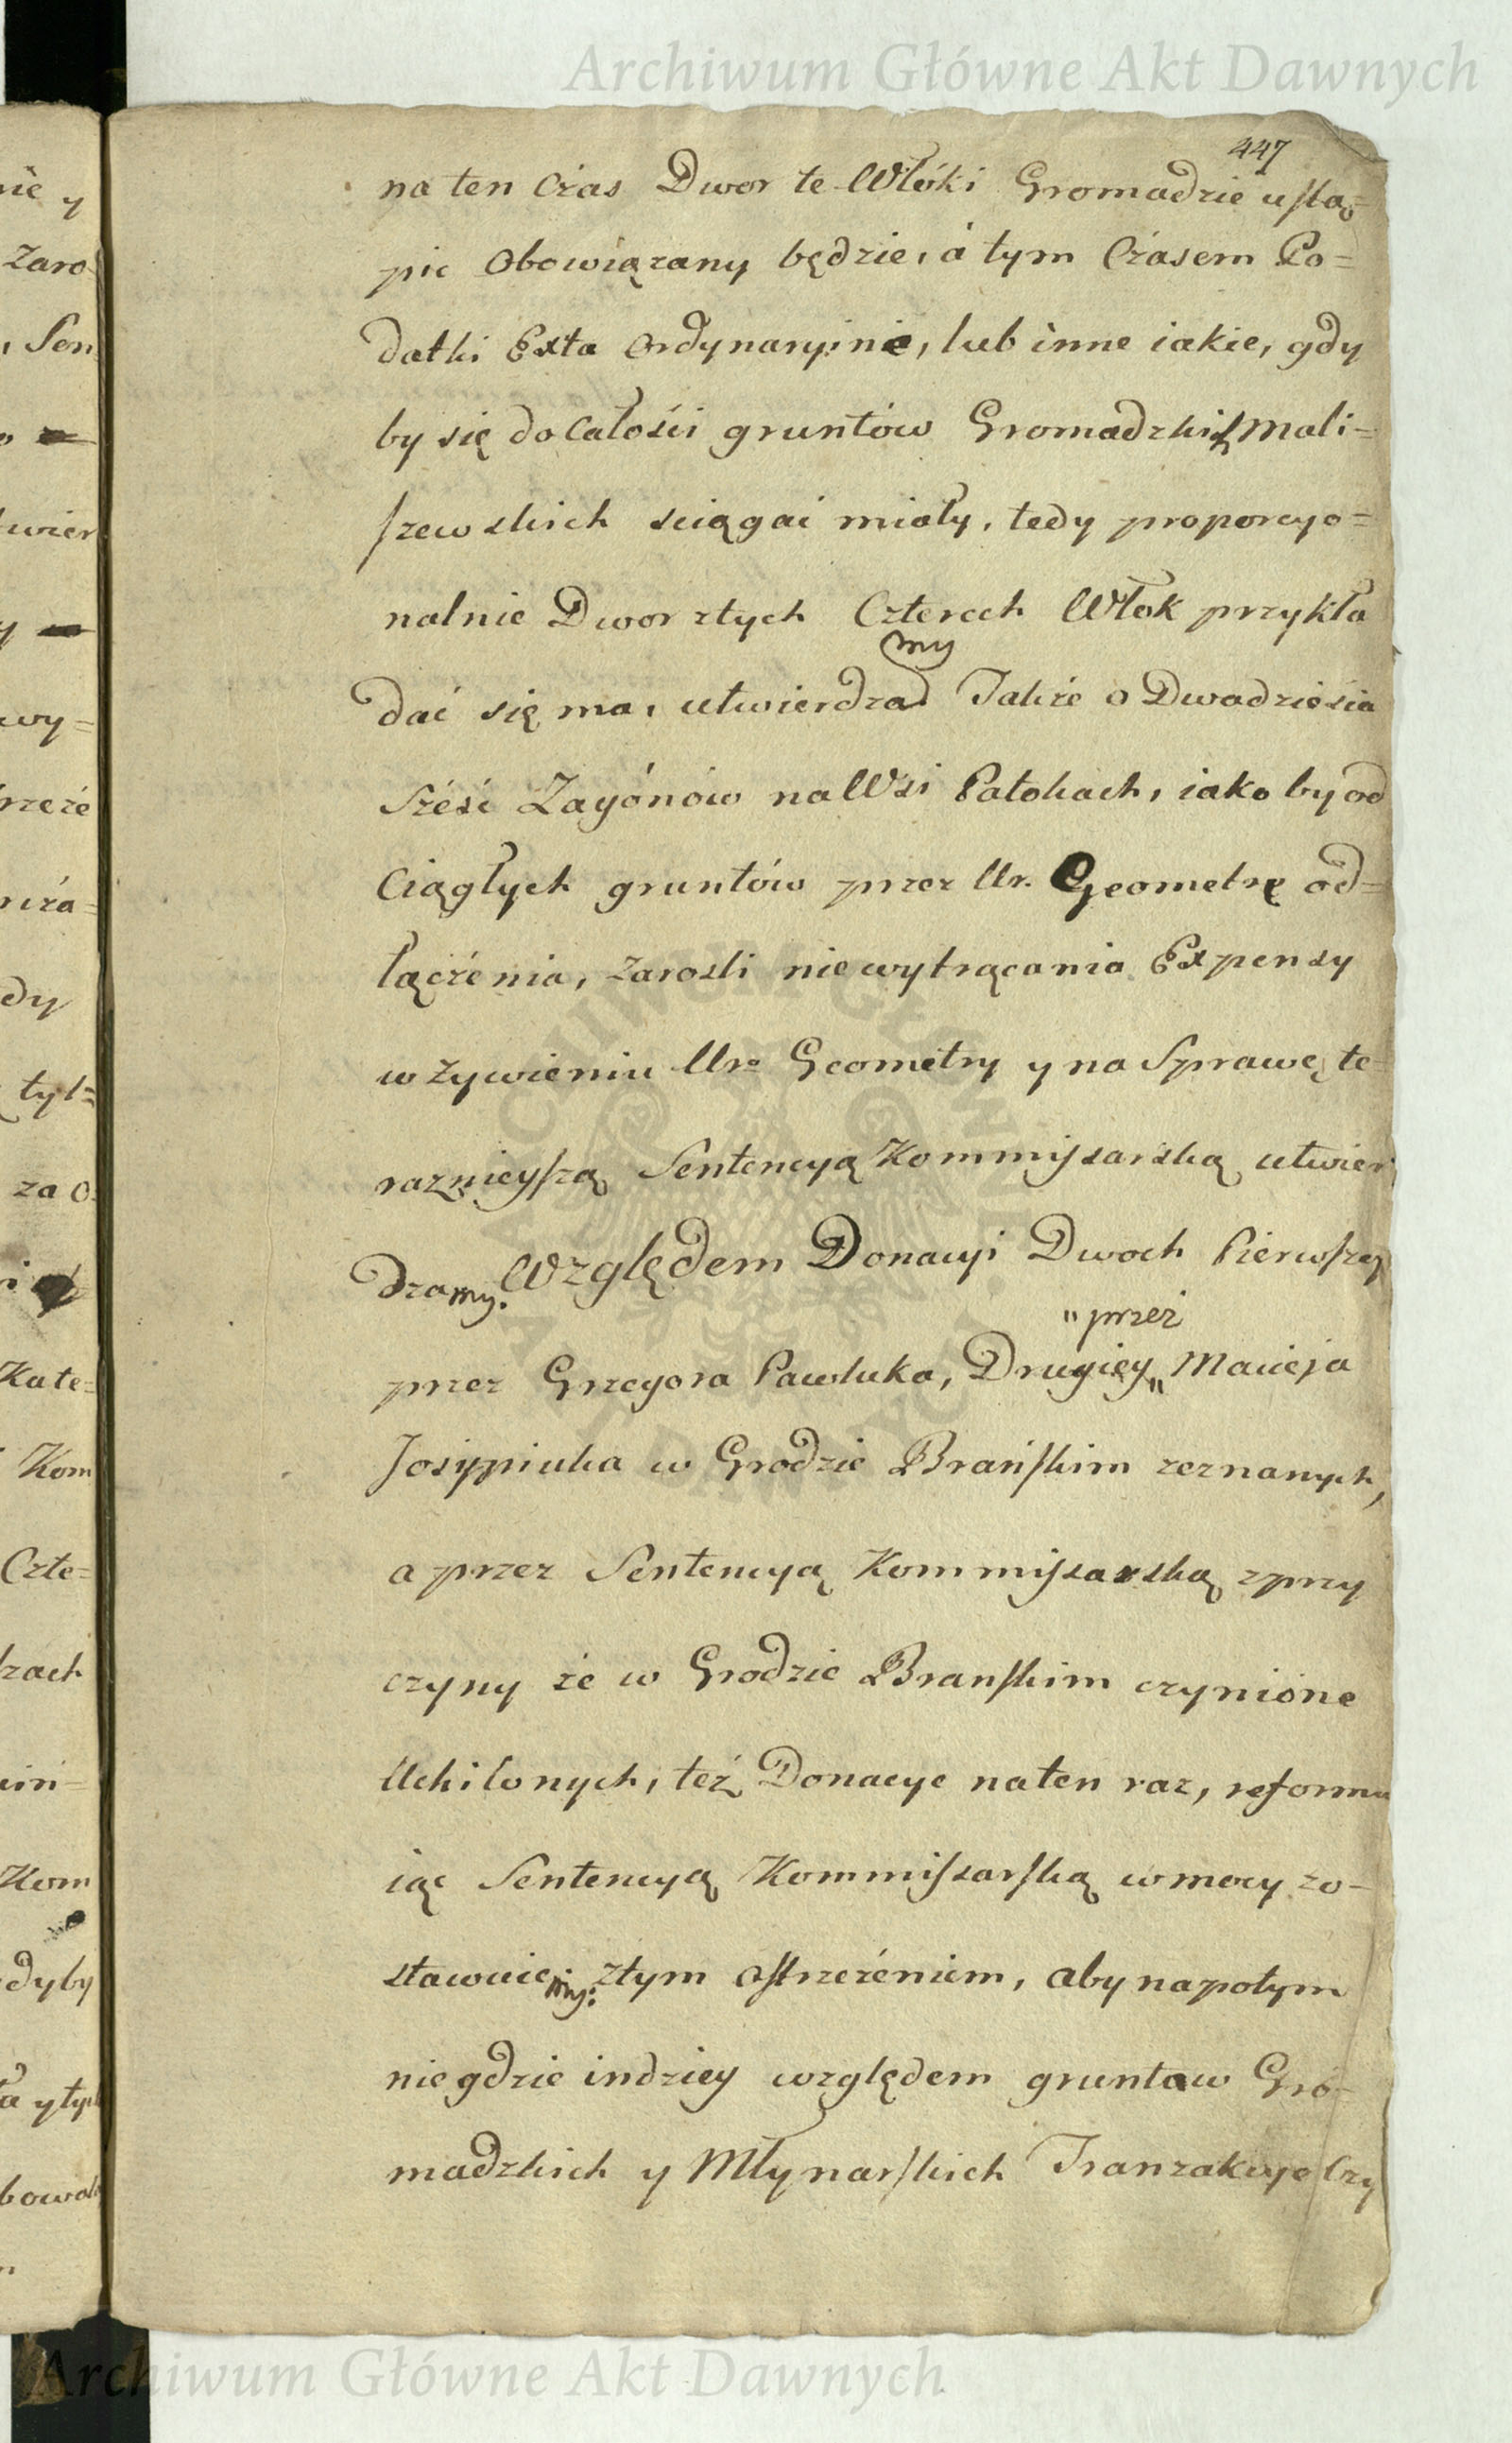 Archiwum Główne Akt Dawnych
447
na ten Czas Dwor te Włóki Gromadzie ustą=
pic Obowiązany będzie, á tym Czasem Po=
datki Exta Ordynaryine, lub inne iakie, gdy
by się do Całości gruntów Gromadzkich Mali=
szewskich sciągać miały, tedy proporcyo=
nalnie Dwor z tych Czterech Włok przykła
dać się ma, utwierdzamy Także o Dwadzieścia
Sześć Zagónów na Wsi Patokach, iako by od
Ciągłych gruntów przez Ur. Geometrę od=
łączenia, Zarosli niewytrącania Expensy
w Zywieniu Ur: Geometry y na Sprawę te=
raznieyszą Sentencyą Kommissarską utwier
dzamy. Względem Donacyi Dwoch Pierwszey
" przez
przez Grzegora Pawluka, Drugiey " Macieja
Josypiuka w Grodzie Brańskim zeznanych,
a przez Sentencyą Kommissarską z przy
czyny że w Grodzie Branskim czynióne
Uchilonych, też Donacye na ten raz, reformu
iąc Sentencyą Kommissarską w mocy zo=
stawuiemy: z tym ostrzeżeniem, aby napotym
nie gdzie indziey względem gruntow Gro=
madzkich y Młynarskich Tranzakcye Czy
Archiwum Główne Akt Dawnych